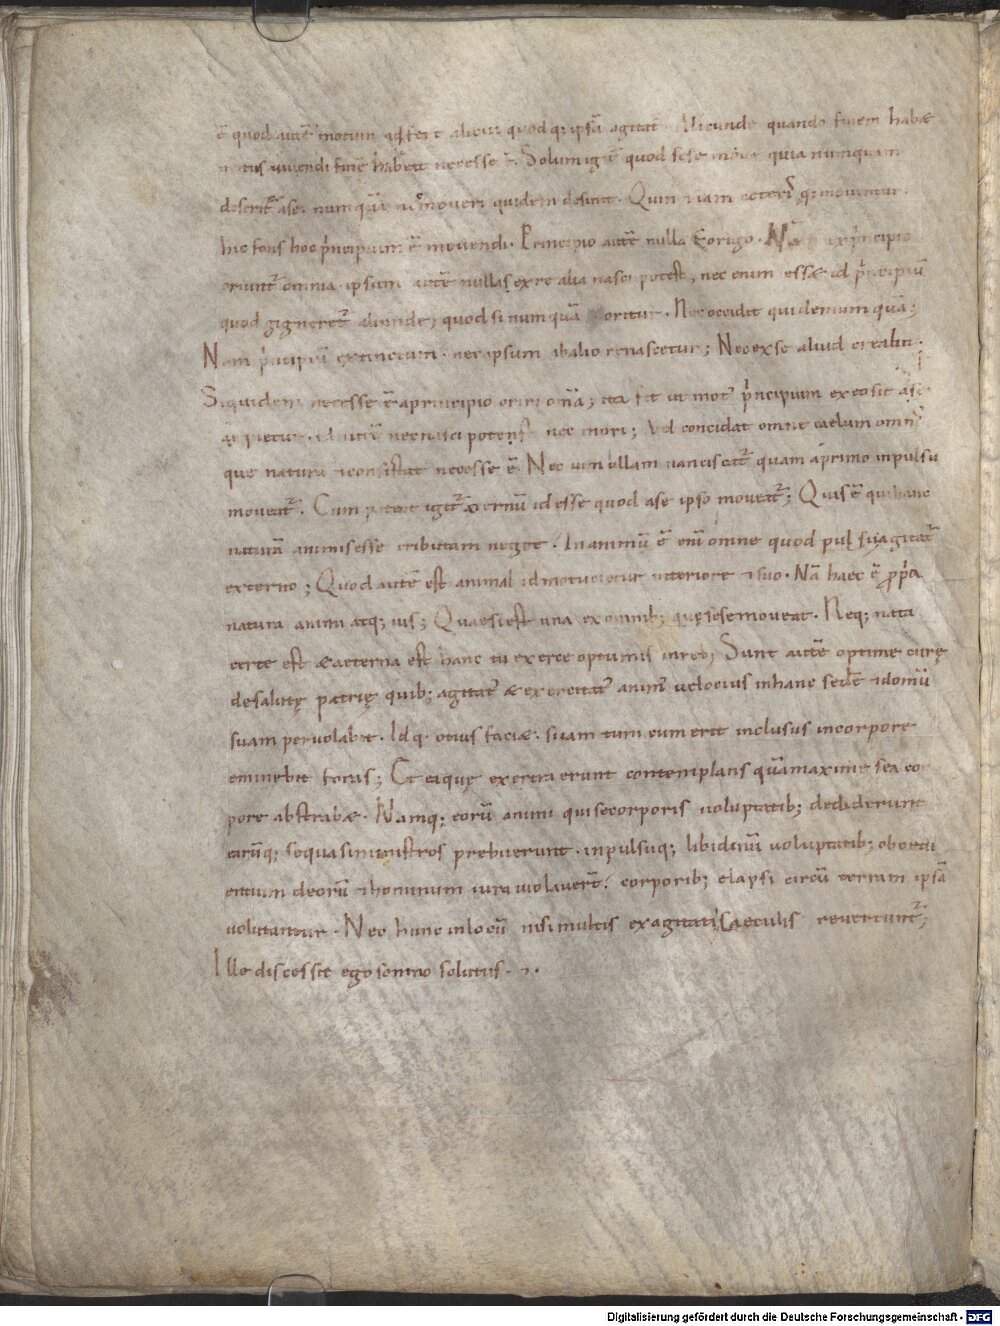 ē quod autē motum adfert alicui quodq; ipsā agitat Alicunde quando finem habæ
motus vivendi finē habeat necesse ē. Solum igit̄ quod sese movæ quia numquam
deserit̄ ase. numquā nē moveri quidem desinit. Quin etiam ceteris q; moventur.
hic fons hoc p̄ncipium ē movendi. Principio autē nulla ē origo. Nā ex p̄ncipio
oriunt̄ omnia. ipsum autē nullas exre alia nasci potest, nec enim essæ id p̄ncipiū
quod gigneret̄ aliunde; quod si numquā oritur. Nec occidit quidem umquā;
Nam p̄ncipiū extinctum. nec ipsum ab alio renascetur; Nec ex se aliud creabit.
Siquidem necesse ē a principio oriri om̄a; ita fit ut mot' p̄ncipium ex eo sit
id autē nec nasci potest nec mori; Vel concidat omne caelum omnis
que natura & consistat necesse ē Nec vim ullam nanciscat̄ quam a primo inpulsu
moveat̄. Cum pateat igit̄ æternū id esse quod ase ipso moveat̄; Quis ē qui hanc
naturā animis esse tributam neget. Inanimū ē eni omne quod pulsu agitat̄
externo; Quod autē est animal id motu cietur interiore & suo. Nā haec ē ꝓp̄a
natura animi atq; vis; Quae si est una ex omnib; quę sese moveat. Neq; nata
certe est & aeterna est hanc tu exerce optumis in reb; Sunt autē optime curę
de salutę patrię quib; agitat' & exercitat' anim' velocius in hanc sedē & domū
suam pervolabit. Idq. otius faciæ. suam tum cum erit inclusus in corpore
eminebit foras; Et ea quę extra erunt contemplans quā maxime sea cor
pore abstrahæ. Namq; eorū animi qui se corporis voluptatib; dediderunt
earūq; se quasi ministros prebuerunt. inpulsuq; libidinū voluptatib; oboedi
entium deorū & hominum iura violaverт̄. corporib; elapsi circū terram ipsā
volutantur. Nec hunc in locū nisi multis exagitati saeculis revertunt̄;
Ille discessit ego somno solutus.
Digitalisierung gefördert durch die Deutsche Forschungsgemeinschaft - DFG